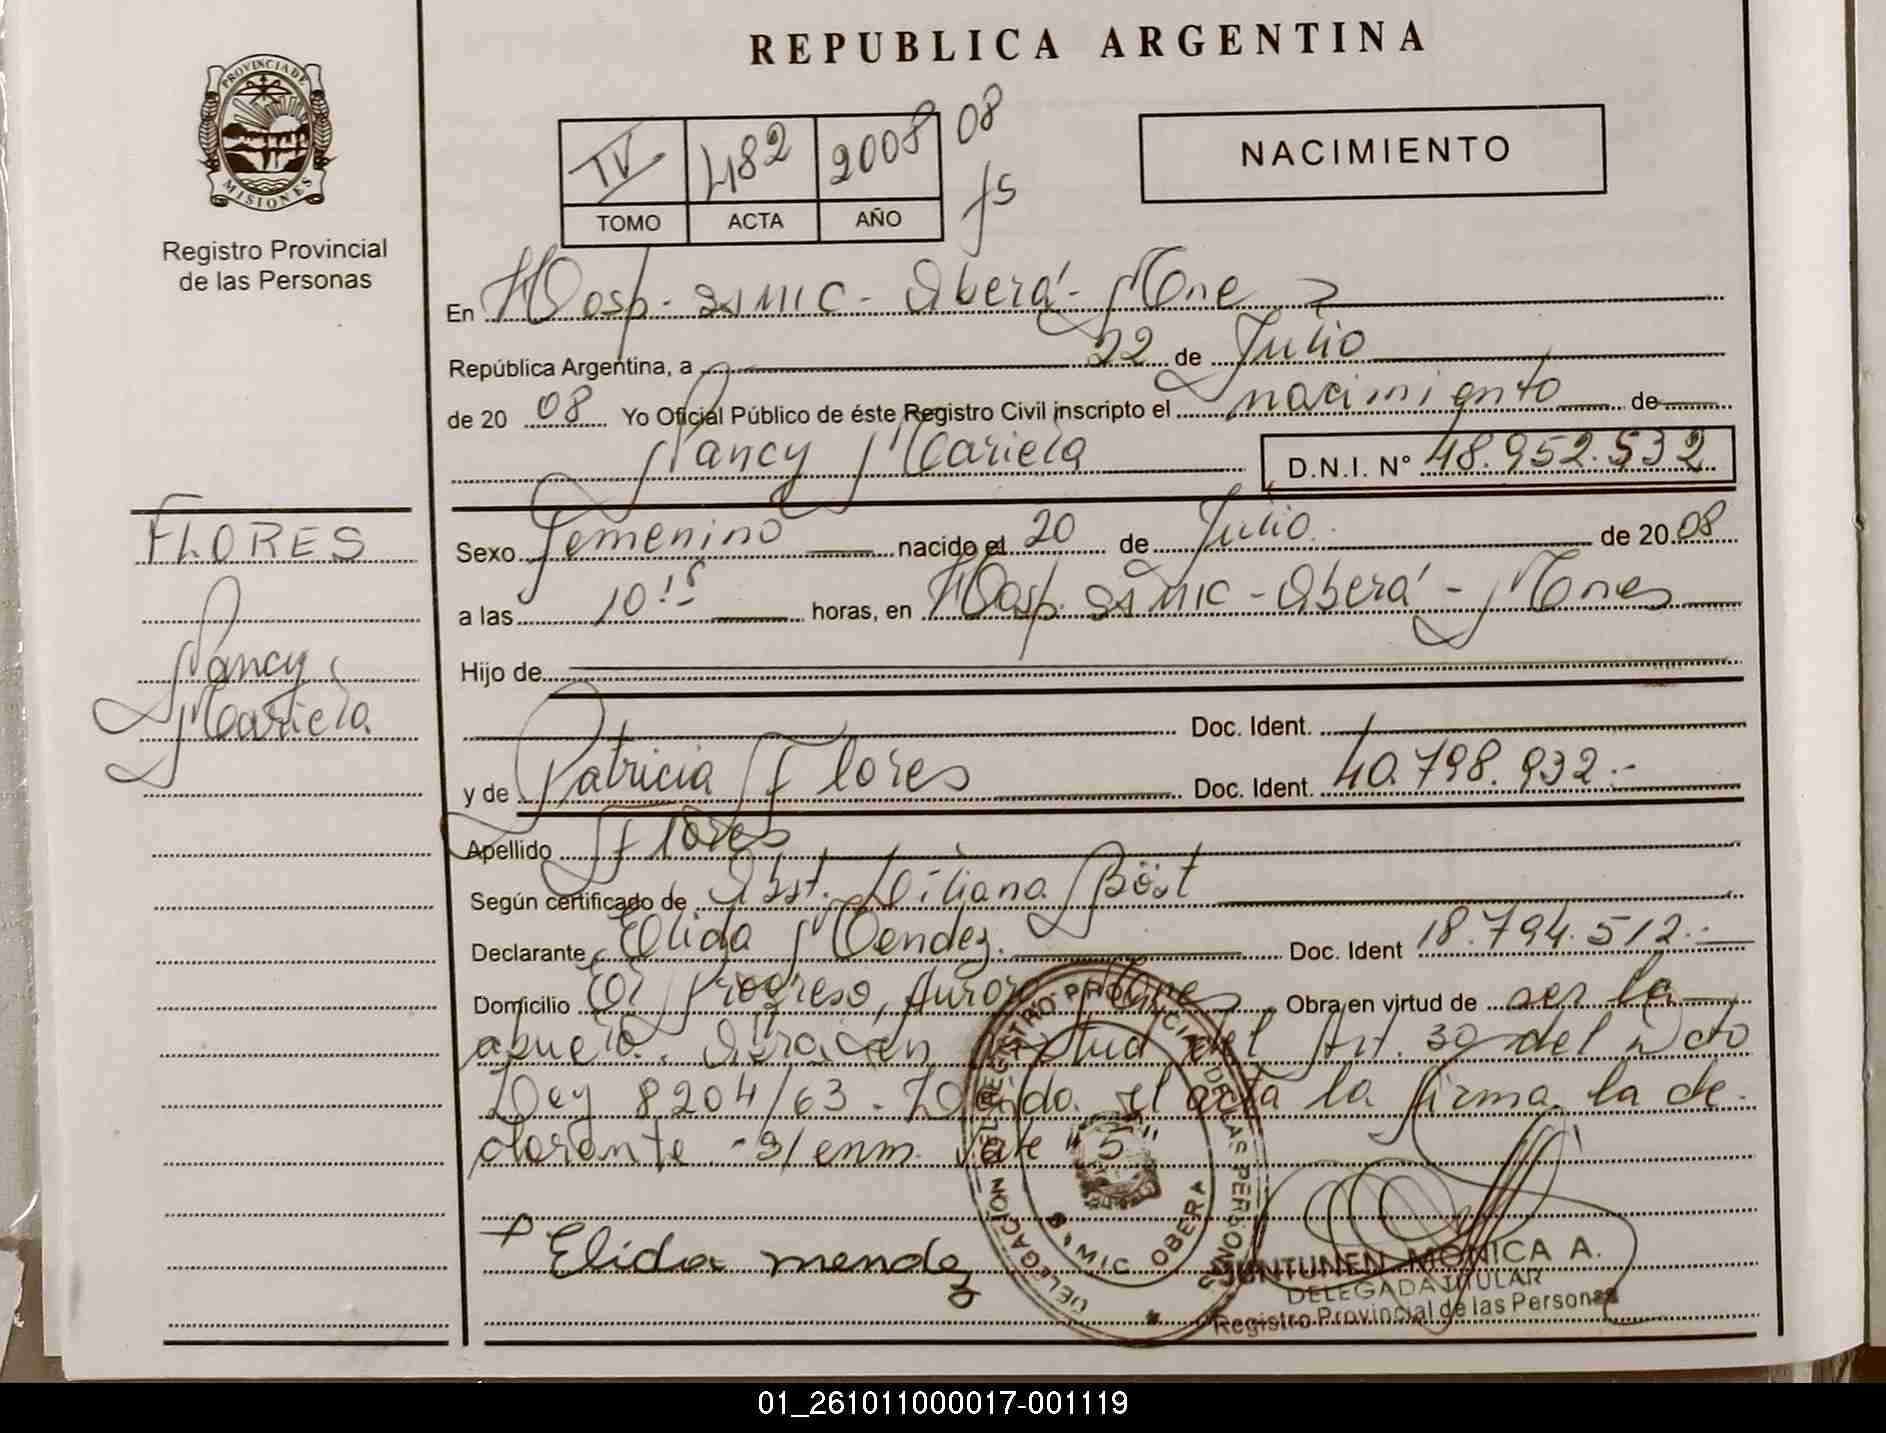 REPUBLICA ARGENTINA
PROVINCIA DE
MISIONES
Registro Provincial
de las Personas
IV 482 2008 08
TOMO ACTA AÑO fs
NACIMIENTO
En Hosp. SAMIC - Oberá - Mnes
República Argentina, a 22 de Julio
de 20 08 Yo Oficial Público de éste Registro Civil inscripto el nacimiento de
Nancy Mariela D.N.I. Nº 48.952.532
FLORES
Nancy
Mariela
Sexo Femenino nacido el 20 de Julio de 20 08
a las 10:15 horas, en Hosp. SAMIC - Oberá - Mnes
Hijo de
Doc. Ident.
y de Patricia Flores Doc. Ident. 40.798.932.-
Apellido Flores
Según certificado de Obst. Liliana
Declarante Elida Mendez. Doc. Ident 18.794.512.-
Domicilio El Progreso, Aurora, Mnes Obra en virtud de ser la
abuela. virtud del Art. 30 del Dcto
Ley 8204/63. el acta la firma la de-
clarante - s/enm. vale "5"
Elida mendez
DELEGACION DEL REGISTRO PROVINCIAL DE LAS PERSONAS
OBERA
JUNTUNEN MONICA A.
DELEGADA TITULAR
Registro Provincial de las Personas
01_261011000017-001119